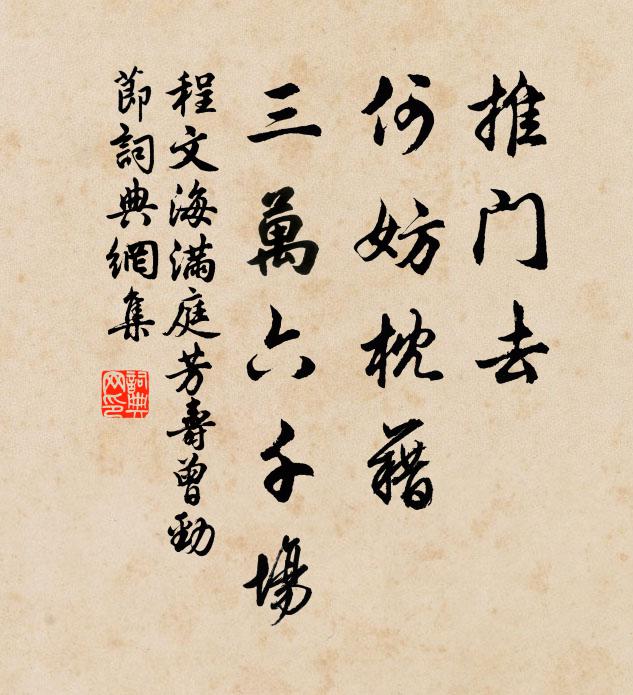 推门去
何妨枕藉
三萬六千場
程文海滿庭芳壽曾勁
節詞典網集
詞典
网印